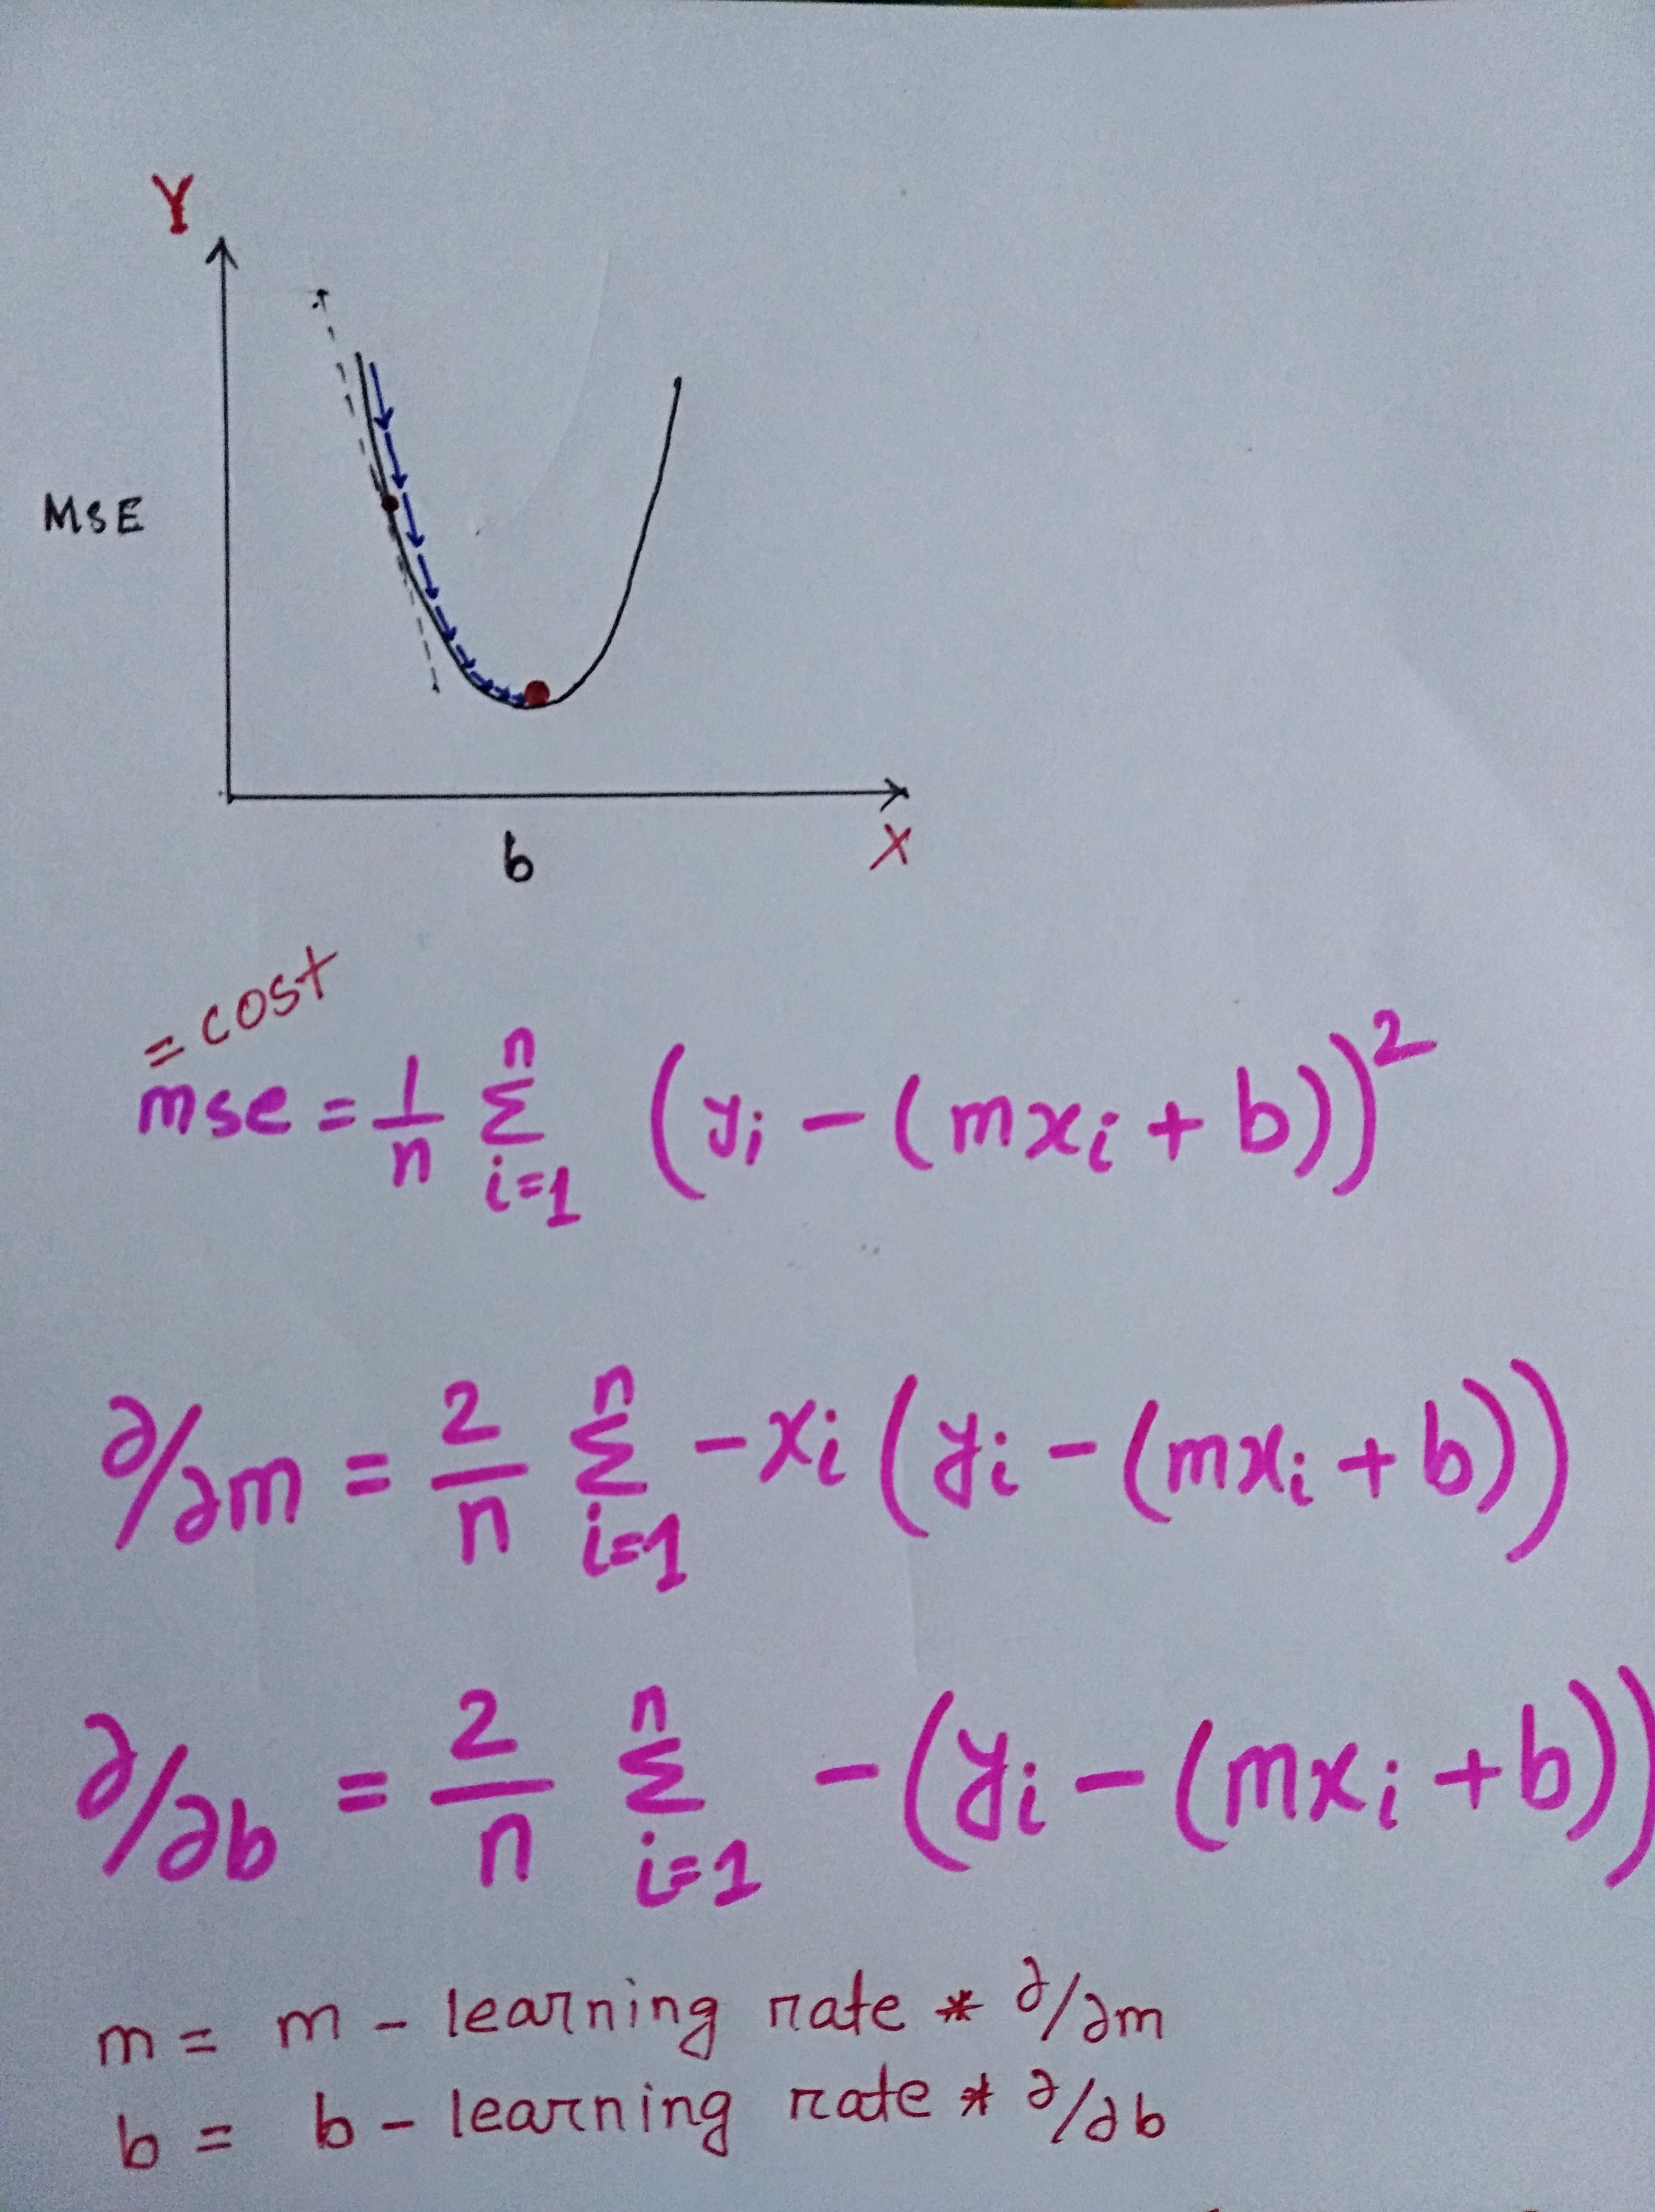 Y
MSE
b
X
= cost
mse = 1/n Σ i=1 n (yi - (mxi + b))²
∂/∂m = 2/n Σ i=1 n -xi (yi - (mxi + b))
∂/∂b = 2/n Σ i=1 n -(yi - (mxi + b))
m = m - learning rate * ∂/∂m
b = b - learning rate * ∂/∂b